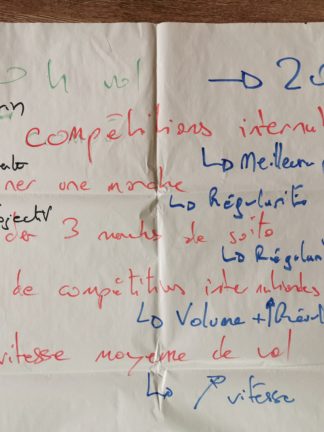 h vol → 20
compétitions internat
↳ Meilleur
ner une manche
↳ Régularité
objectif
der 3 manches de suite
↳ Régular
de compétitions internationales
↳ Volume + ↑ Résul
vitesse moyenne de vol
↳ ↗ vitesse